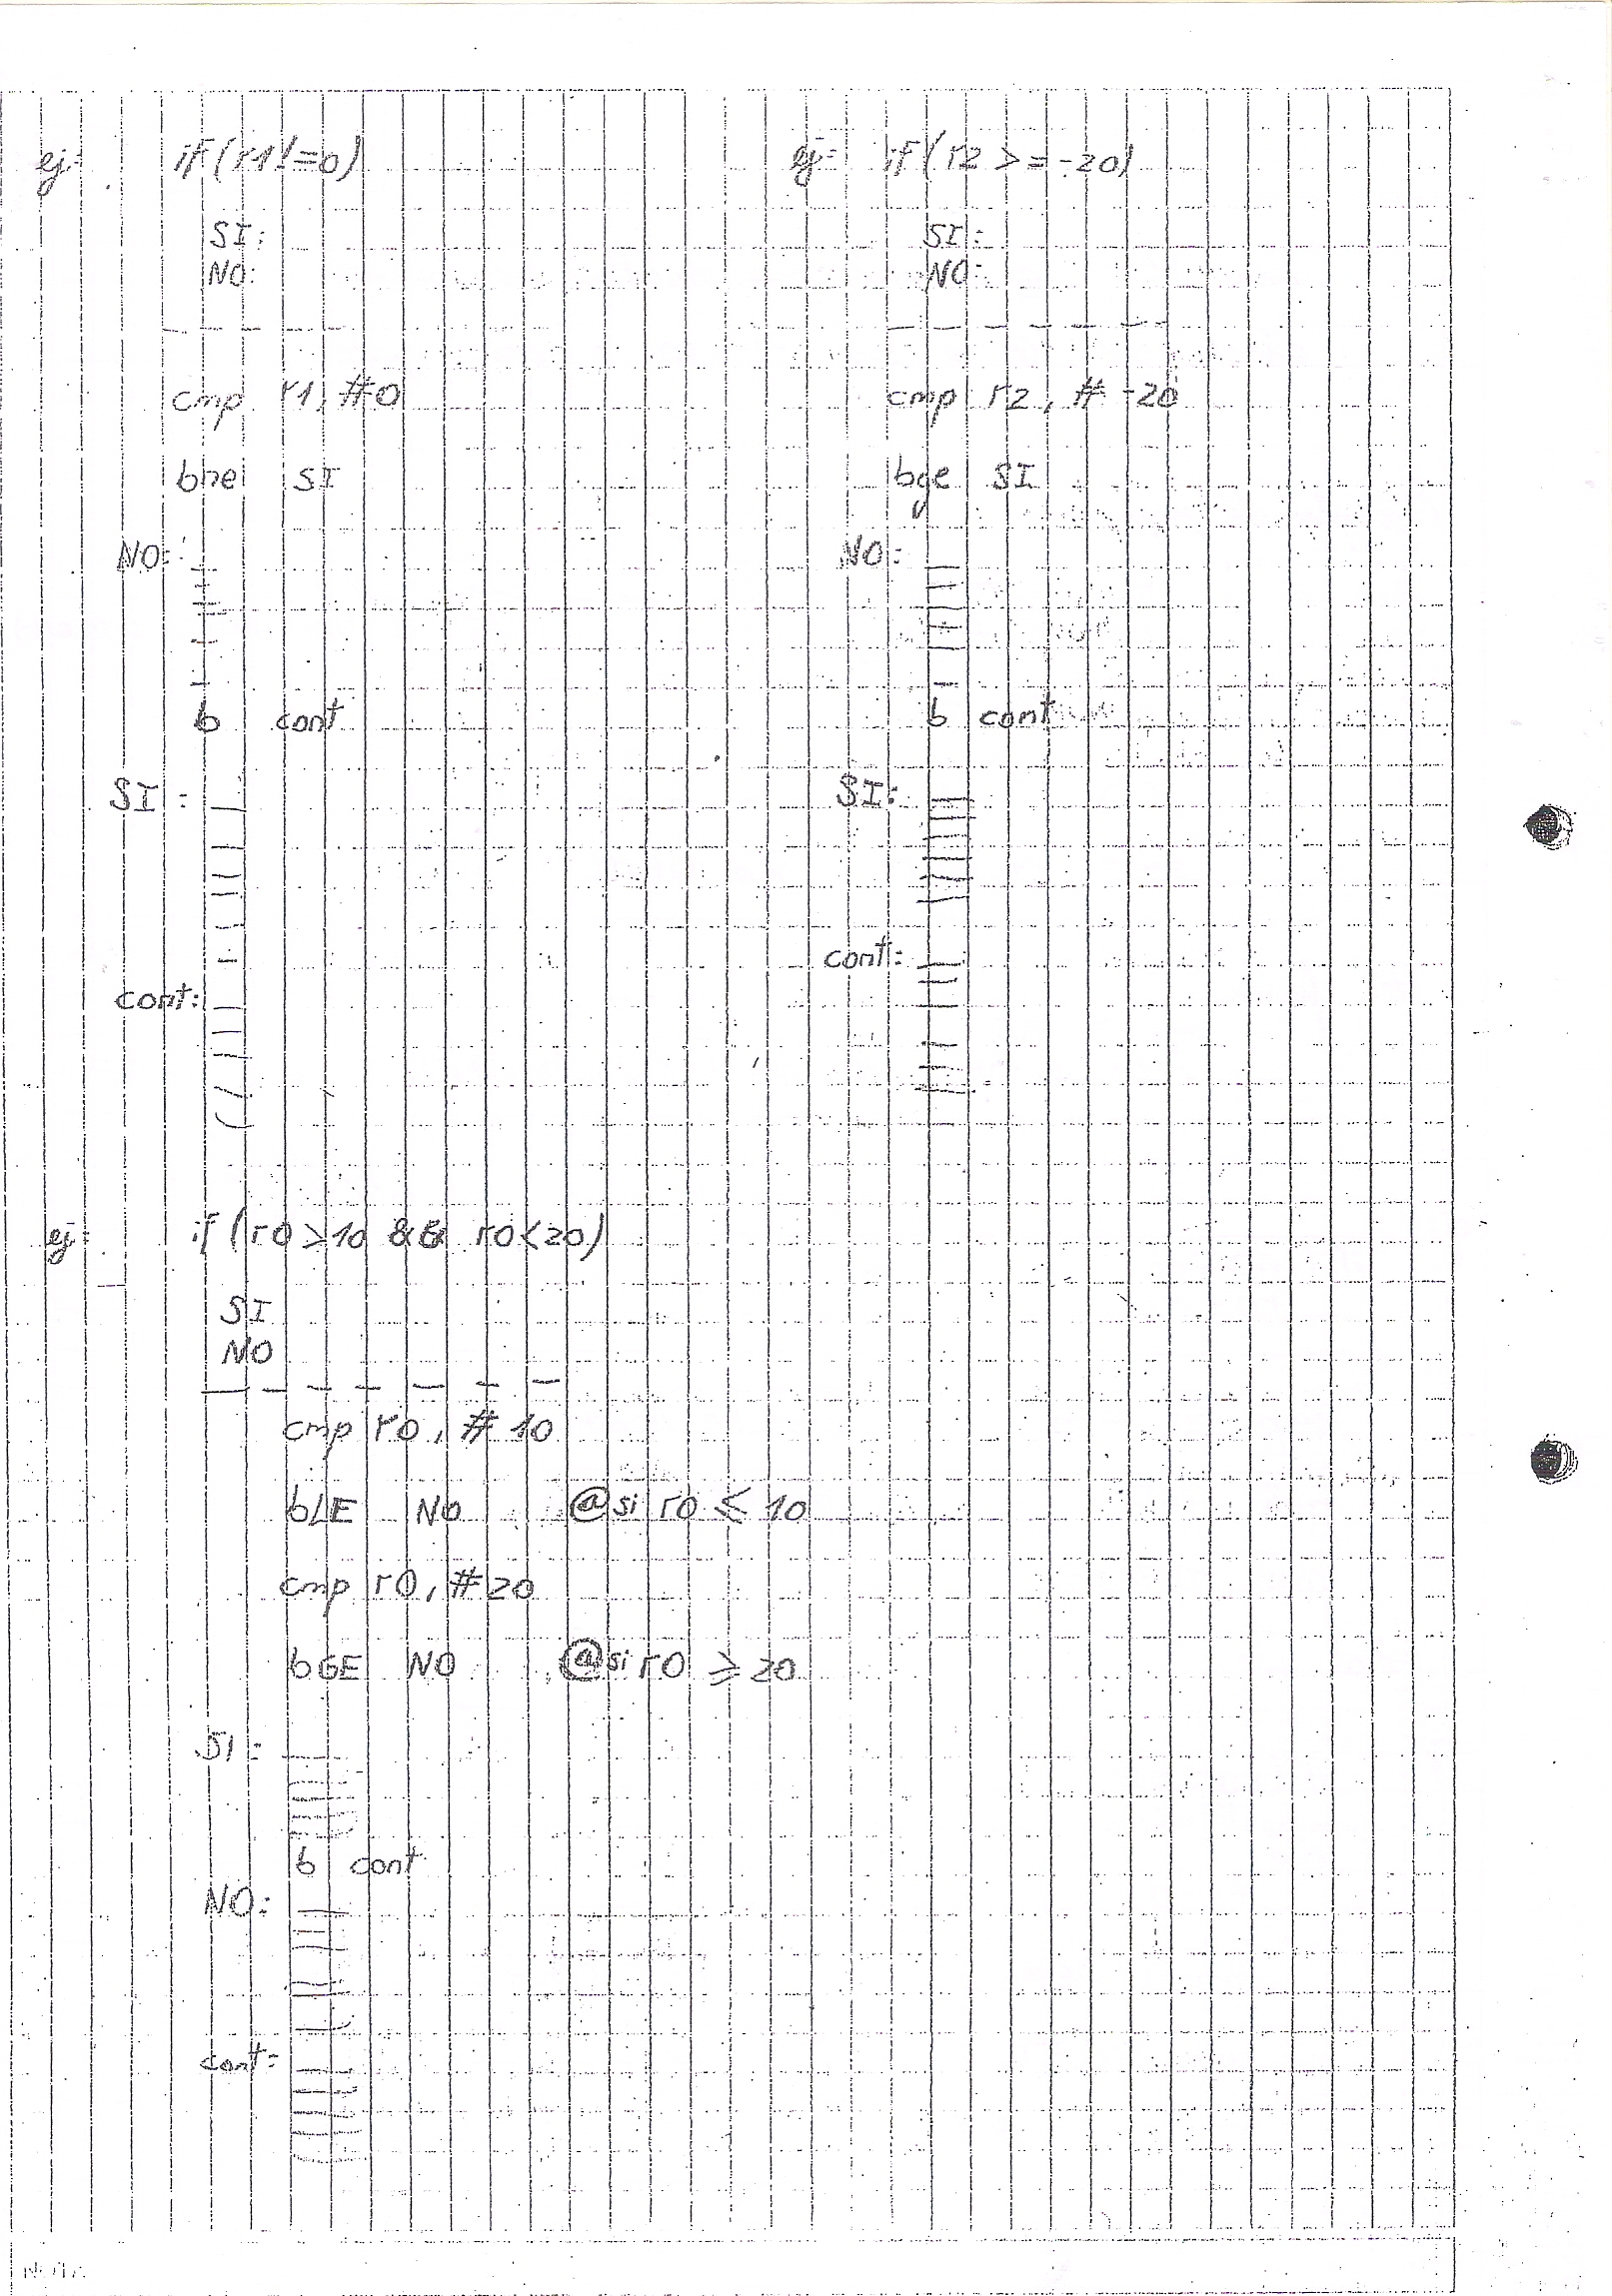 ej: if (r1 != 0)
SI:
NO:
cmp r1, #0
bne SI
NO:
b cont
SI:
cont:
ej: if (r2 >= -20)
SI:
NO:
cmp r2, # -20
bge SI
NO:
b cont
SI:
cont:
ej: if (r0 > 10 && r0 < 20)
SI
NO
cmp r0, # 10
bLE NO @ si r0 ≤ 10
cmp r0, # 20
bGE NO @ si r0 ≥ 20
SI:
b cont
NO:
cont: